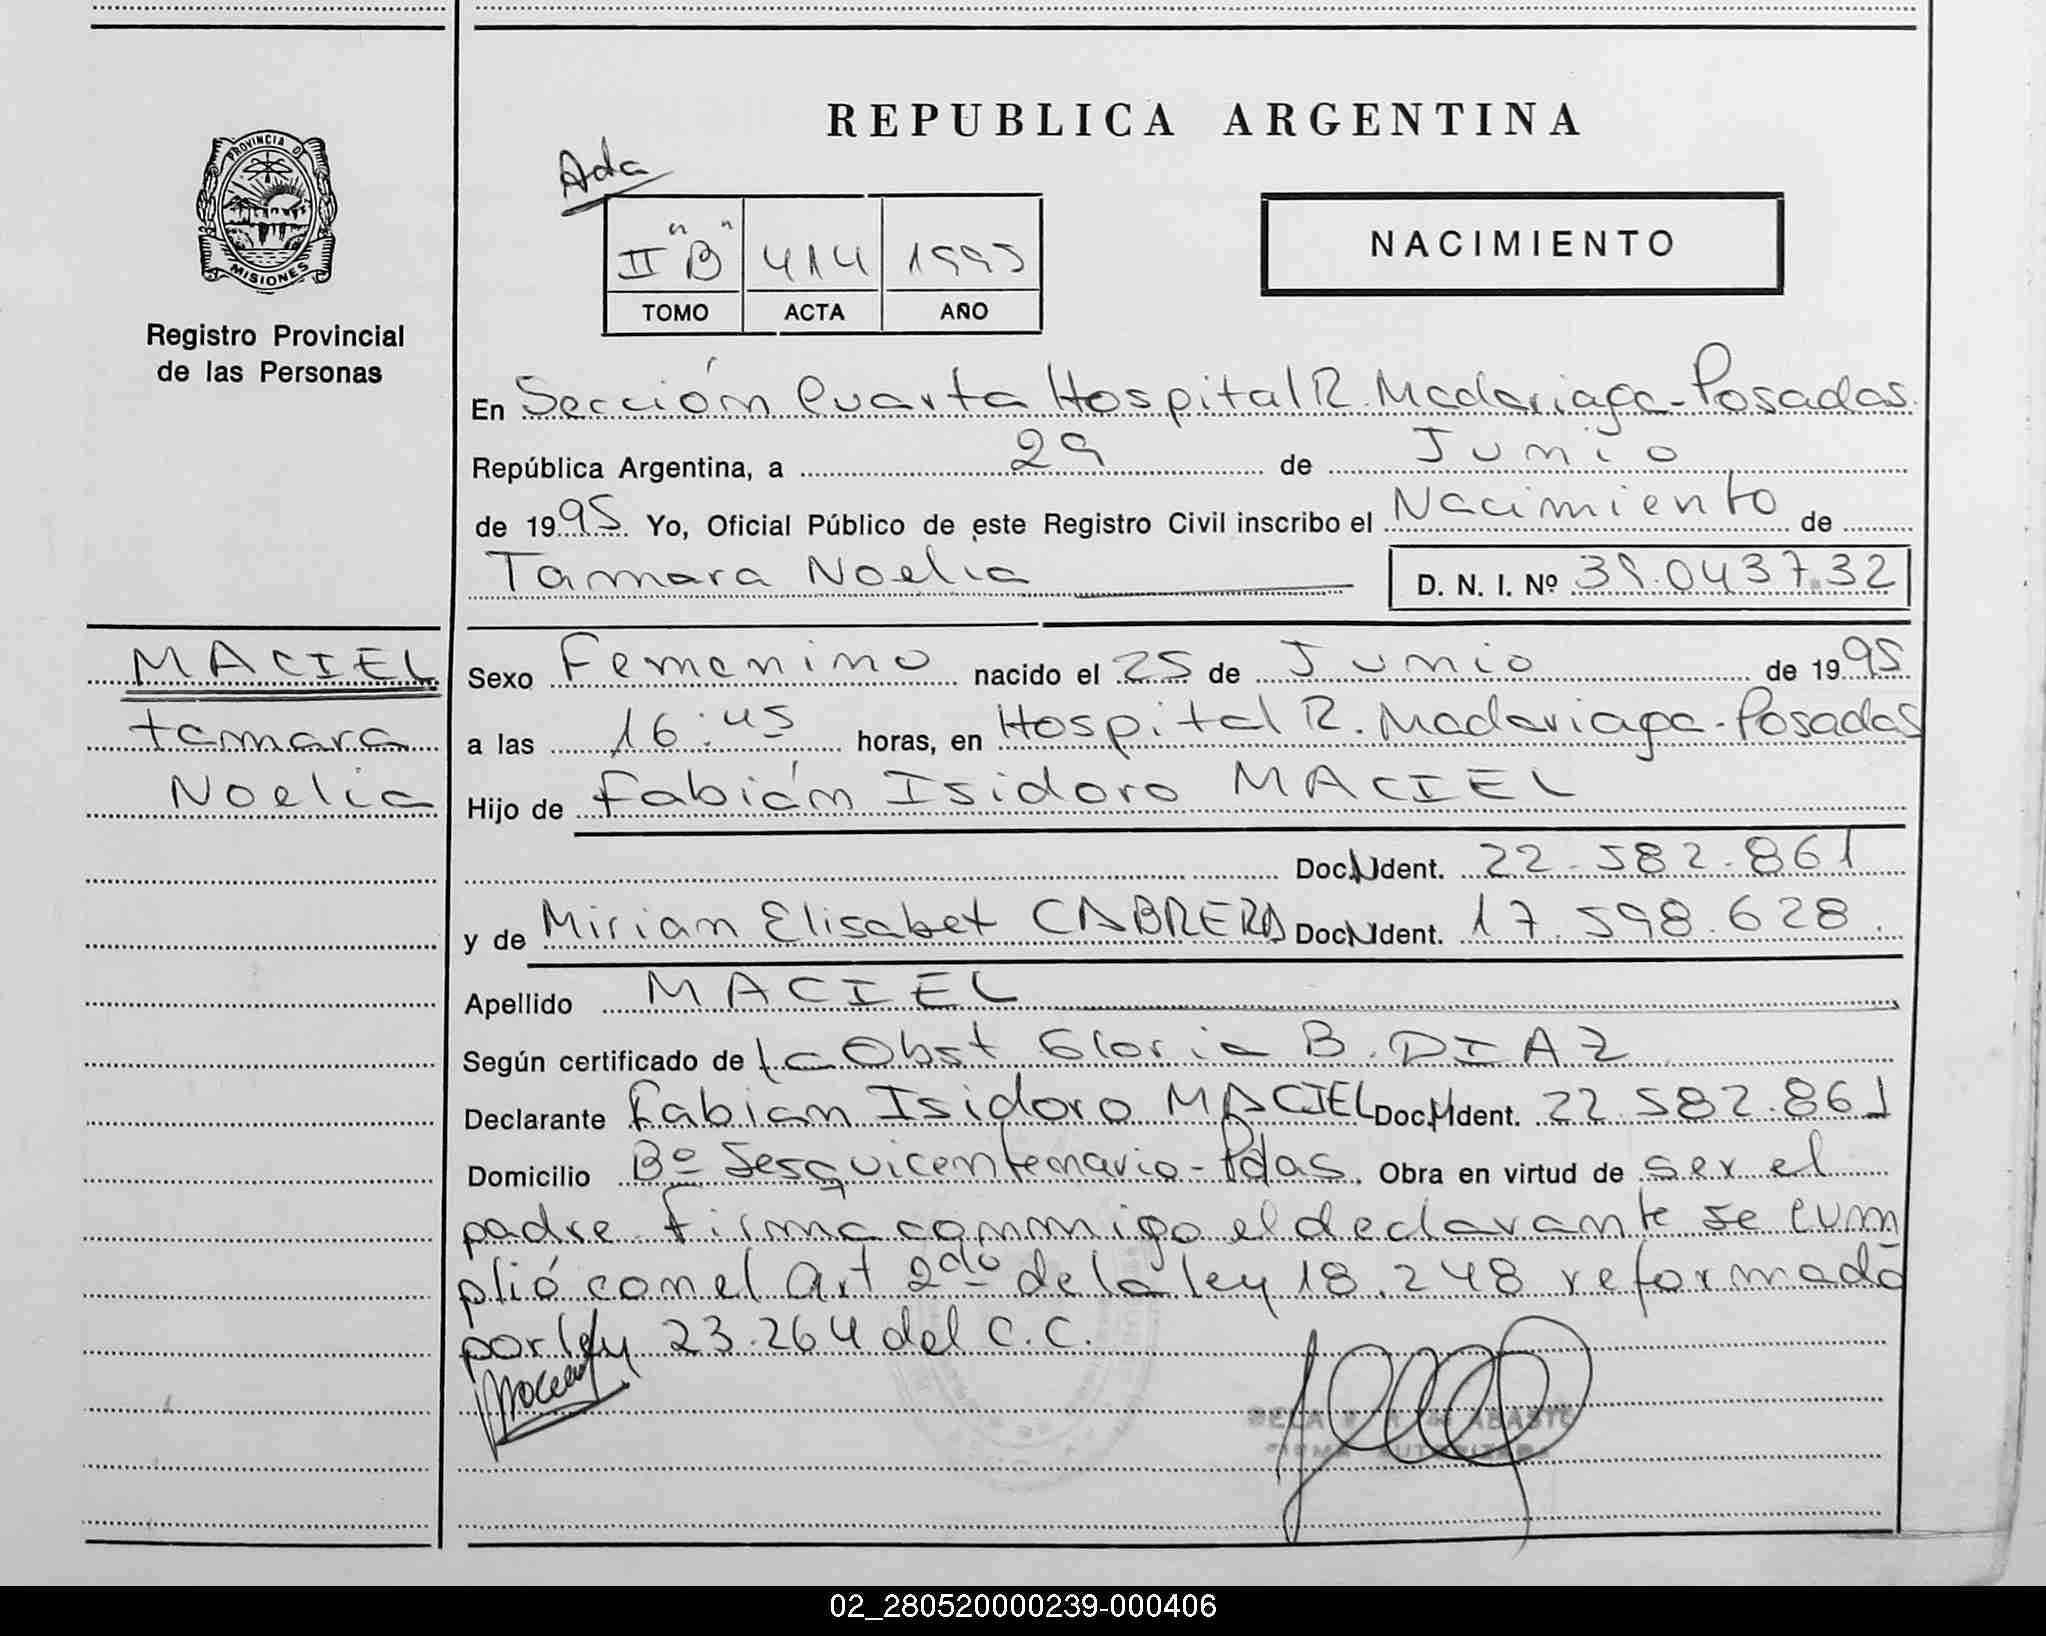 REPUBLICA ARGENTINA
PROVINCIA D
MISIONES
Registro Provincial
de las Personas
Ada
II "B" 414 1995
TOMO ACTA AÑO
NACIMIENTO
En Sección Cuarta Hospital R. Madariaga - Posadas.
República Argentina, a 29 de Junio
de 1995 Yo, Oficial Público de este Registro Civil inscribo el Nacimiento de
Tamara Noelia D. N. I. Nº 39.043732
MACIEL
tamara
Noelia
Sexo Femenino nacido el 25 de Junio de 1995
a las 16:45 horas, en Hospital R. Madariaga - Posadas
Hijo de Fabián Isidoro MACIEL
Doc. Ident. 22.582.861
y de Mirian Elisabet CABRERA Doc. Ident. 17.598.628.
Apellido MACIEL
Según certificado de la Obst Gloria B. DIAZ
Declarante Fabian Isidoro MACIEL Doc. Ident. 22.582.861
Domicilio Bº Sesquicentenario - Pdas. Obra en virtud de ser el
padre. Firma conmigo el declarante se cum
plió con el Art 2do de la ley 18.248 reformada
por ley 23.264 del C.C.
02_280520000239-000406